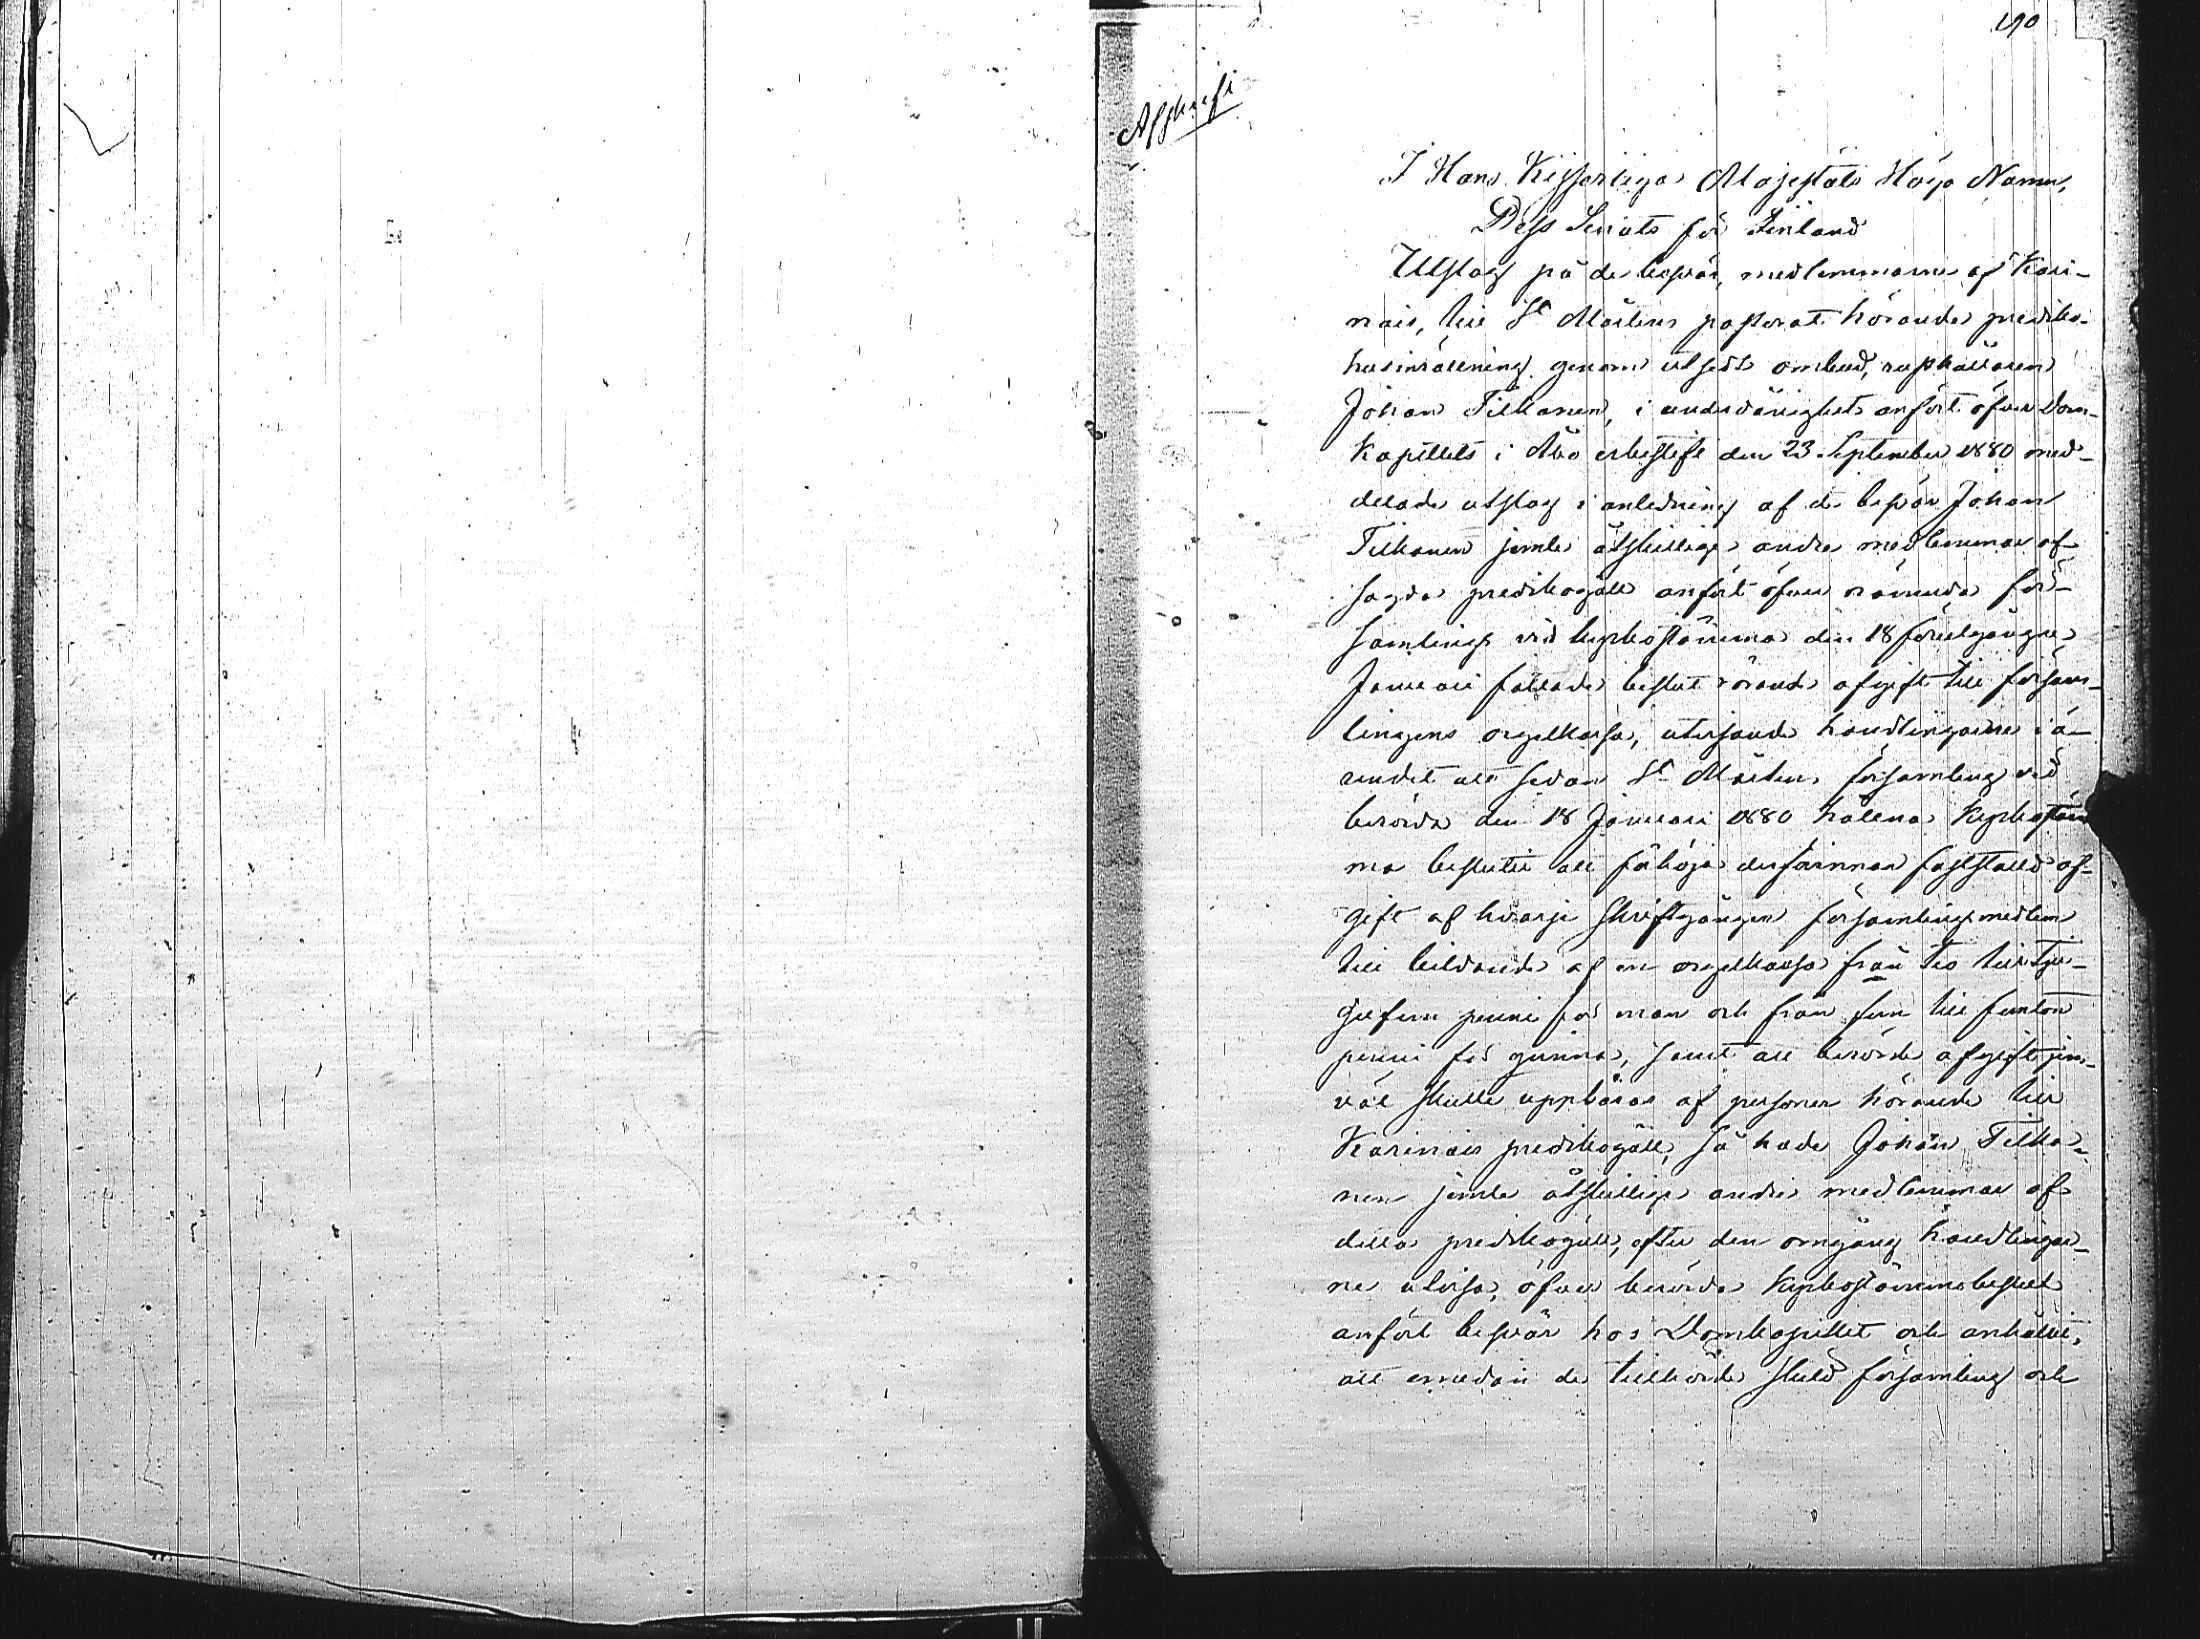 190
Afskrift
I Hans Kejserliga Majestäts Höga Namn,
Dess Senats för Finland
Utslag på de besvär, medlemmarne af Kari-
nais, till St Mårtens pastorat hörande prediko-
husinrättning genom utsedt ombud, rusthållaren
Johan Tilkanen, i underdånighet anfört öfver Dom-
kapitlets i Åbo erkestift den 23 September 1880 med-
delade utslag i anledning af de besvär Johan
Tilkanen jemte åtskillige andre medlemmar af
sagda predikogäll anfört öfver nämnda för-
samlings vid kyrkostämma den 18 förutgångne
Januari fattade beslut rörande afgift till försam-
lingens orgelkassa, utvisande handlingarne i ä-
rendet att sedan St Mårtens församling vid
berörda den 18 Januari 1880 hållna kyrkostäm
ma beslutit att förhöja derförinnan faststäld af-
gift af hvarje skriftgången församlingsmedlem
till bildande af en orgelkassa från tio till tju-
gufem penni för man och från fem till femton
penni för qvinna, samt att berörde afgift jem-
väl skulle uppbäras af personer hörande till
Karinais predikogäll, så hade Johan Tilka-
nen jemte åtskillige andre medlemmar af
detta predikogäll, efter den omgång handlingar-
ne utvisa, öfver berörda kyrkostämmobeslut
anfört besvär hos Domkapitlet och anhållit,
att emedan de tillhörde skild församling och